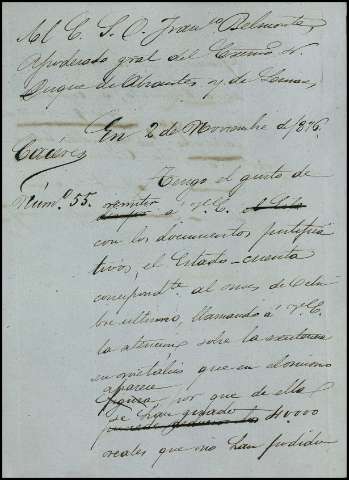 Al E. S. D. Fran.co Belmonte,
Apoderado gral del Excmo. S.
Duque de Abrantes y de Linares,
En 2 de Noviembre d/876.
Cáceres
Núm.o 55.
Tengo el gusto de
remitir a V.E.
con los documentos justifica
tivos, el Estado-cuenta
correspond.te al mes de Octu
bre ultimo, llamando a V.E.
la atencion sobre la existencia
en metálico que en dominio
aparece
por que de ella
se han girado
40.000
reales que no han podido